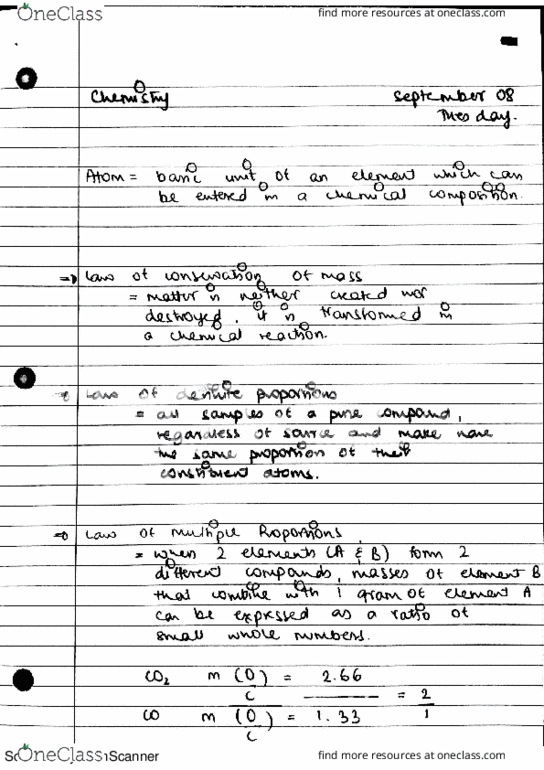 OneClass find more resources at oneclass.com
Chemistry September 08
Tuesday.
Atom = basic unit of an element which can
be entered in a chemical composition.
=> Law of conservation of mass
= matter is neither created nor
destroyed, it is transformed in
a chemical reaction.
Law of definite proportions
= all samples of a pure compound,
regardless of source and make have
the same proportion of their
constituent atoms.
=> Law of Multiple Proportions
= when 2 elements (A & B) form 2
different compounds, masses of element B
that combine with 1 gram of element A
can be expressed as a ratio of
small whole numbers.
CO2 m (O) = 2.66
C = 2
CO m (O) = 1.33 1
C
OneClass Scanner find more resources at oneclass.com